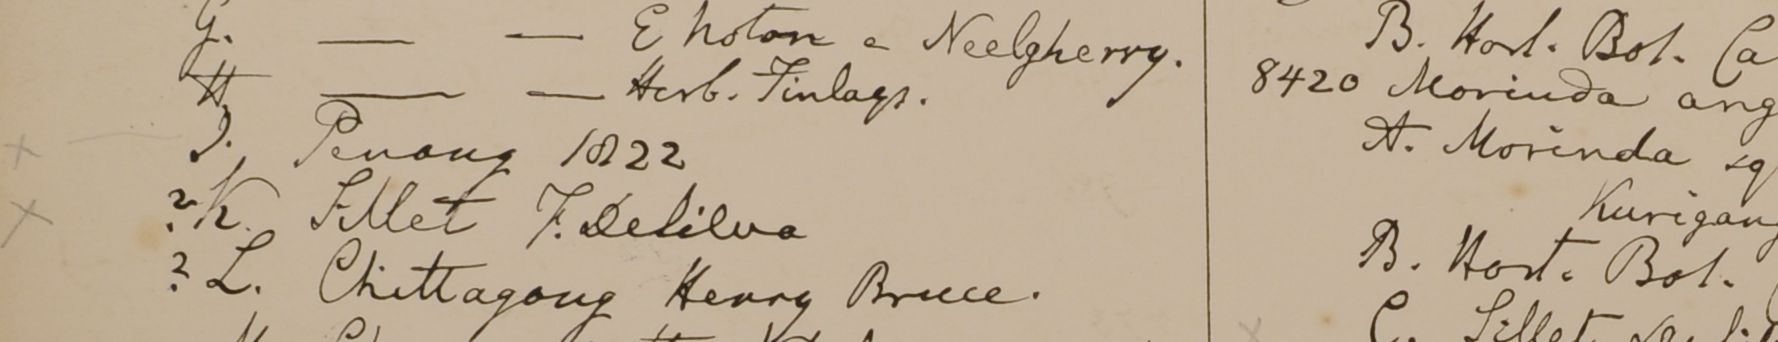 G. — — E Noton e Neelgherry.
H. — — Herb. Finlays.
I. Penang 1822
? K. Sillet F. DeSilva
? L. Chittagong Henry Bruce.
B. Hort. Bot. Ca
8420 Morinda ang
A. Morinda sq
Kurigang
B. Hort. Bot.
C. Sillet